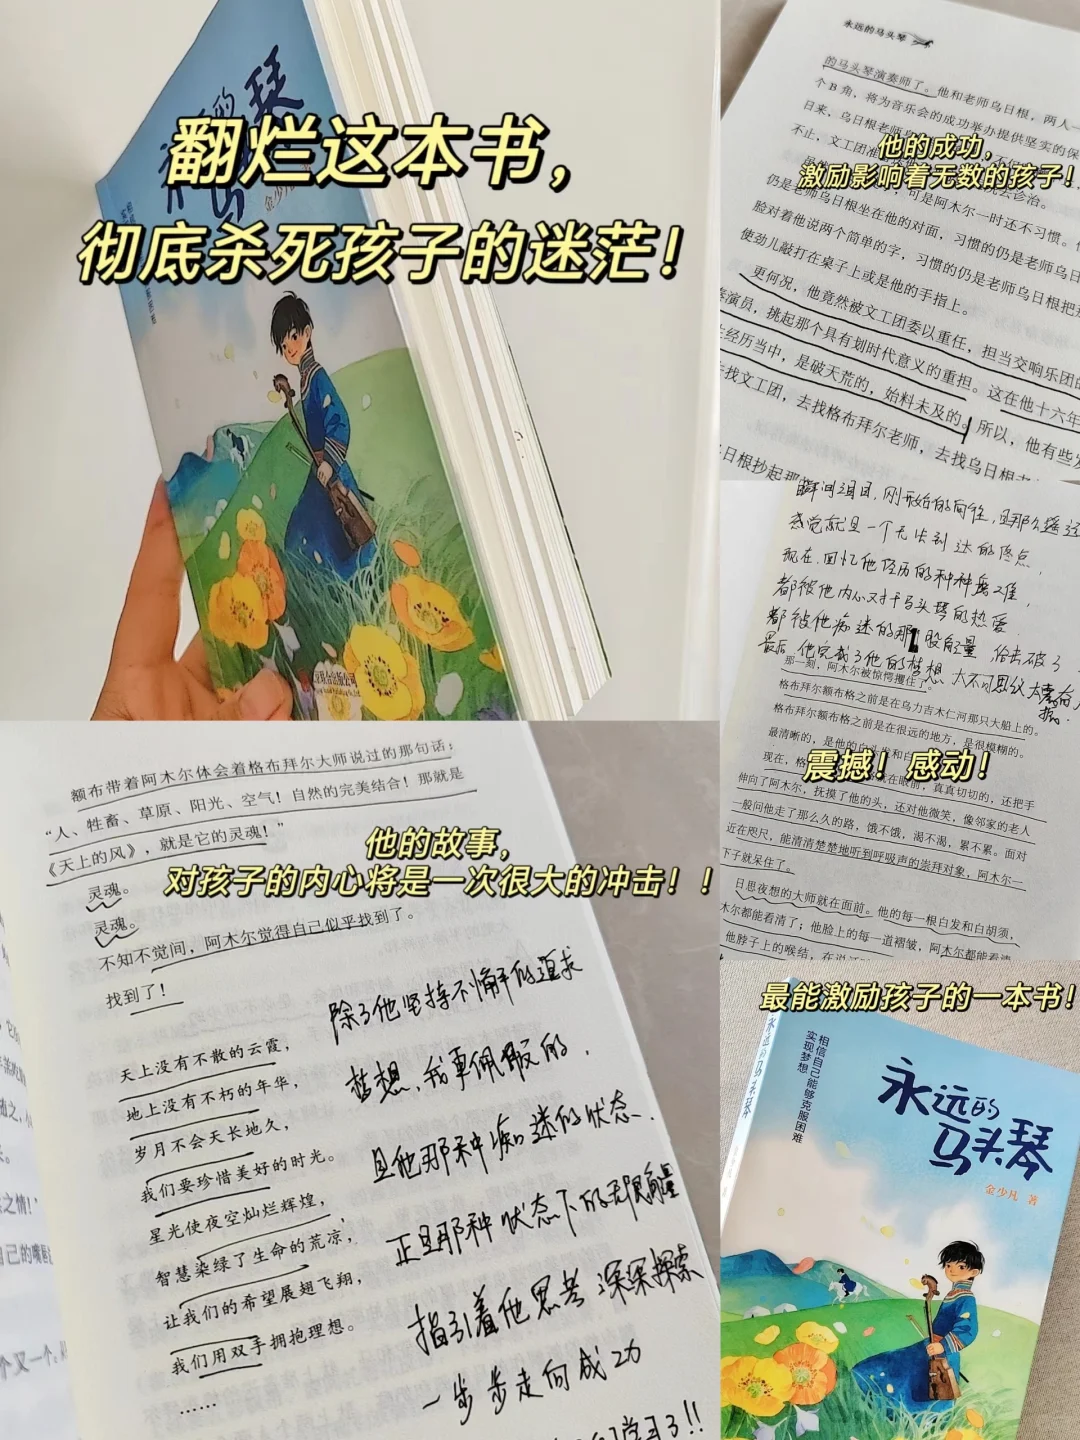 翻烂这本书，
彻底杀死孩子的迷茫！
永远的马头琴
的马头琴演奏师了。他和老师乌日根，两人一
个B角，将为音乐会的成功举办提供坚实的保
日来，乌日根老师
不止，文工团准
他的成功，
激励影响着无数的孩子！
可是阿木尔一时还不习惯。
仍是老师乌日根坐在他的对面，习惯的仍是老师乌日
脸对着他说两个简单的字，习惯的仍是老师乌日根把
使劲儿敲打在桌子上或是他的手指上。
更何况，他竟然被文工团委以重任，担当交响乐团的
奏演员，挑起那个具有划时代意义的重担。这在他十六年
经历当中，是破天荒的，始料未及的。所以，他有些
去找文工团，去找格布拜尔老师，去找乌日根
乌日根抄起那
感觉就是一个无法到达的终点，
现在，回忆他经历的种种磨难，
都被他内心对于马头琴的热爱，
都被他痴迷的那股能量 给击破了
最后，他完成了他的梦想 太不可思议
那一刻，阿木尔被惊愕攫住了。
格布拜尔额布格之前是在乌力吉木仁河那只大船上的。
格布拜尔额布格之前是在很远的地方，是很模糊的。
最清晰的，是他的白头发和白
现在，格
就在眼前，真真切切的，还把手
震撼！感动！
伸向了阿木尔，抚摸了他的头，还对他微笑，像邻家的老人
一般问他走了那么久的路，饿不饿，渴不渴，累不累。面对
近在咫尺，能清清楚楚地听到呼吸声的崇拜对象，阿木尔一
下子就呆住了。
日思夜想的大师就在面前。他的每一根白发和白胡须，
木尔都能看清了；他脸上的每一道褶皱，阿木尔都能看清
他脖子上的喉结，在说
额布带着阿木尔体会着格布拜尔大师说过的那句话：
“人、牲畜、草原、阳光、空气！自然的完美结合！那就是
《天上的风》，就是它的灵魂！”
灵魂。
灵魂。
他的故事，
对孩子的内心将是一次很大的冲击！！
不知不觉间，阿木尔觉得自己似乎找到了。
找到了！
天上没有不散的云霞，
地上没有不朽的年华，
岁月不会天长地久，
我们要珍惜美好的时光。
星光使夜空灿烂辉煌，
智慧染绿了生命的荒凉，
让我们的希望展翅飞翔，
我们用双手拥抱理想。
……
除了他坚持不懈的追求
梦想，我更佩服的，
是他那种痴迷的状态，
正是那种状态下的无限能量
指引着他思考 深深探索
一步步走向成功
最能激励孩子的一本书！
相信自己能够克服困难
实现梦想
永远的
马头琴
金少凡 著